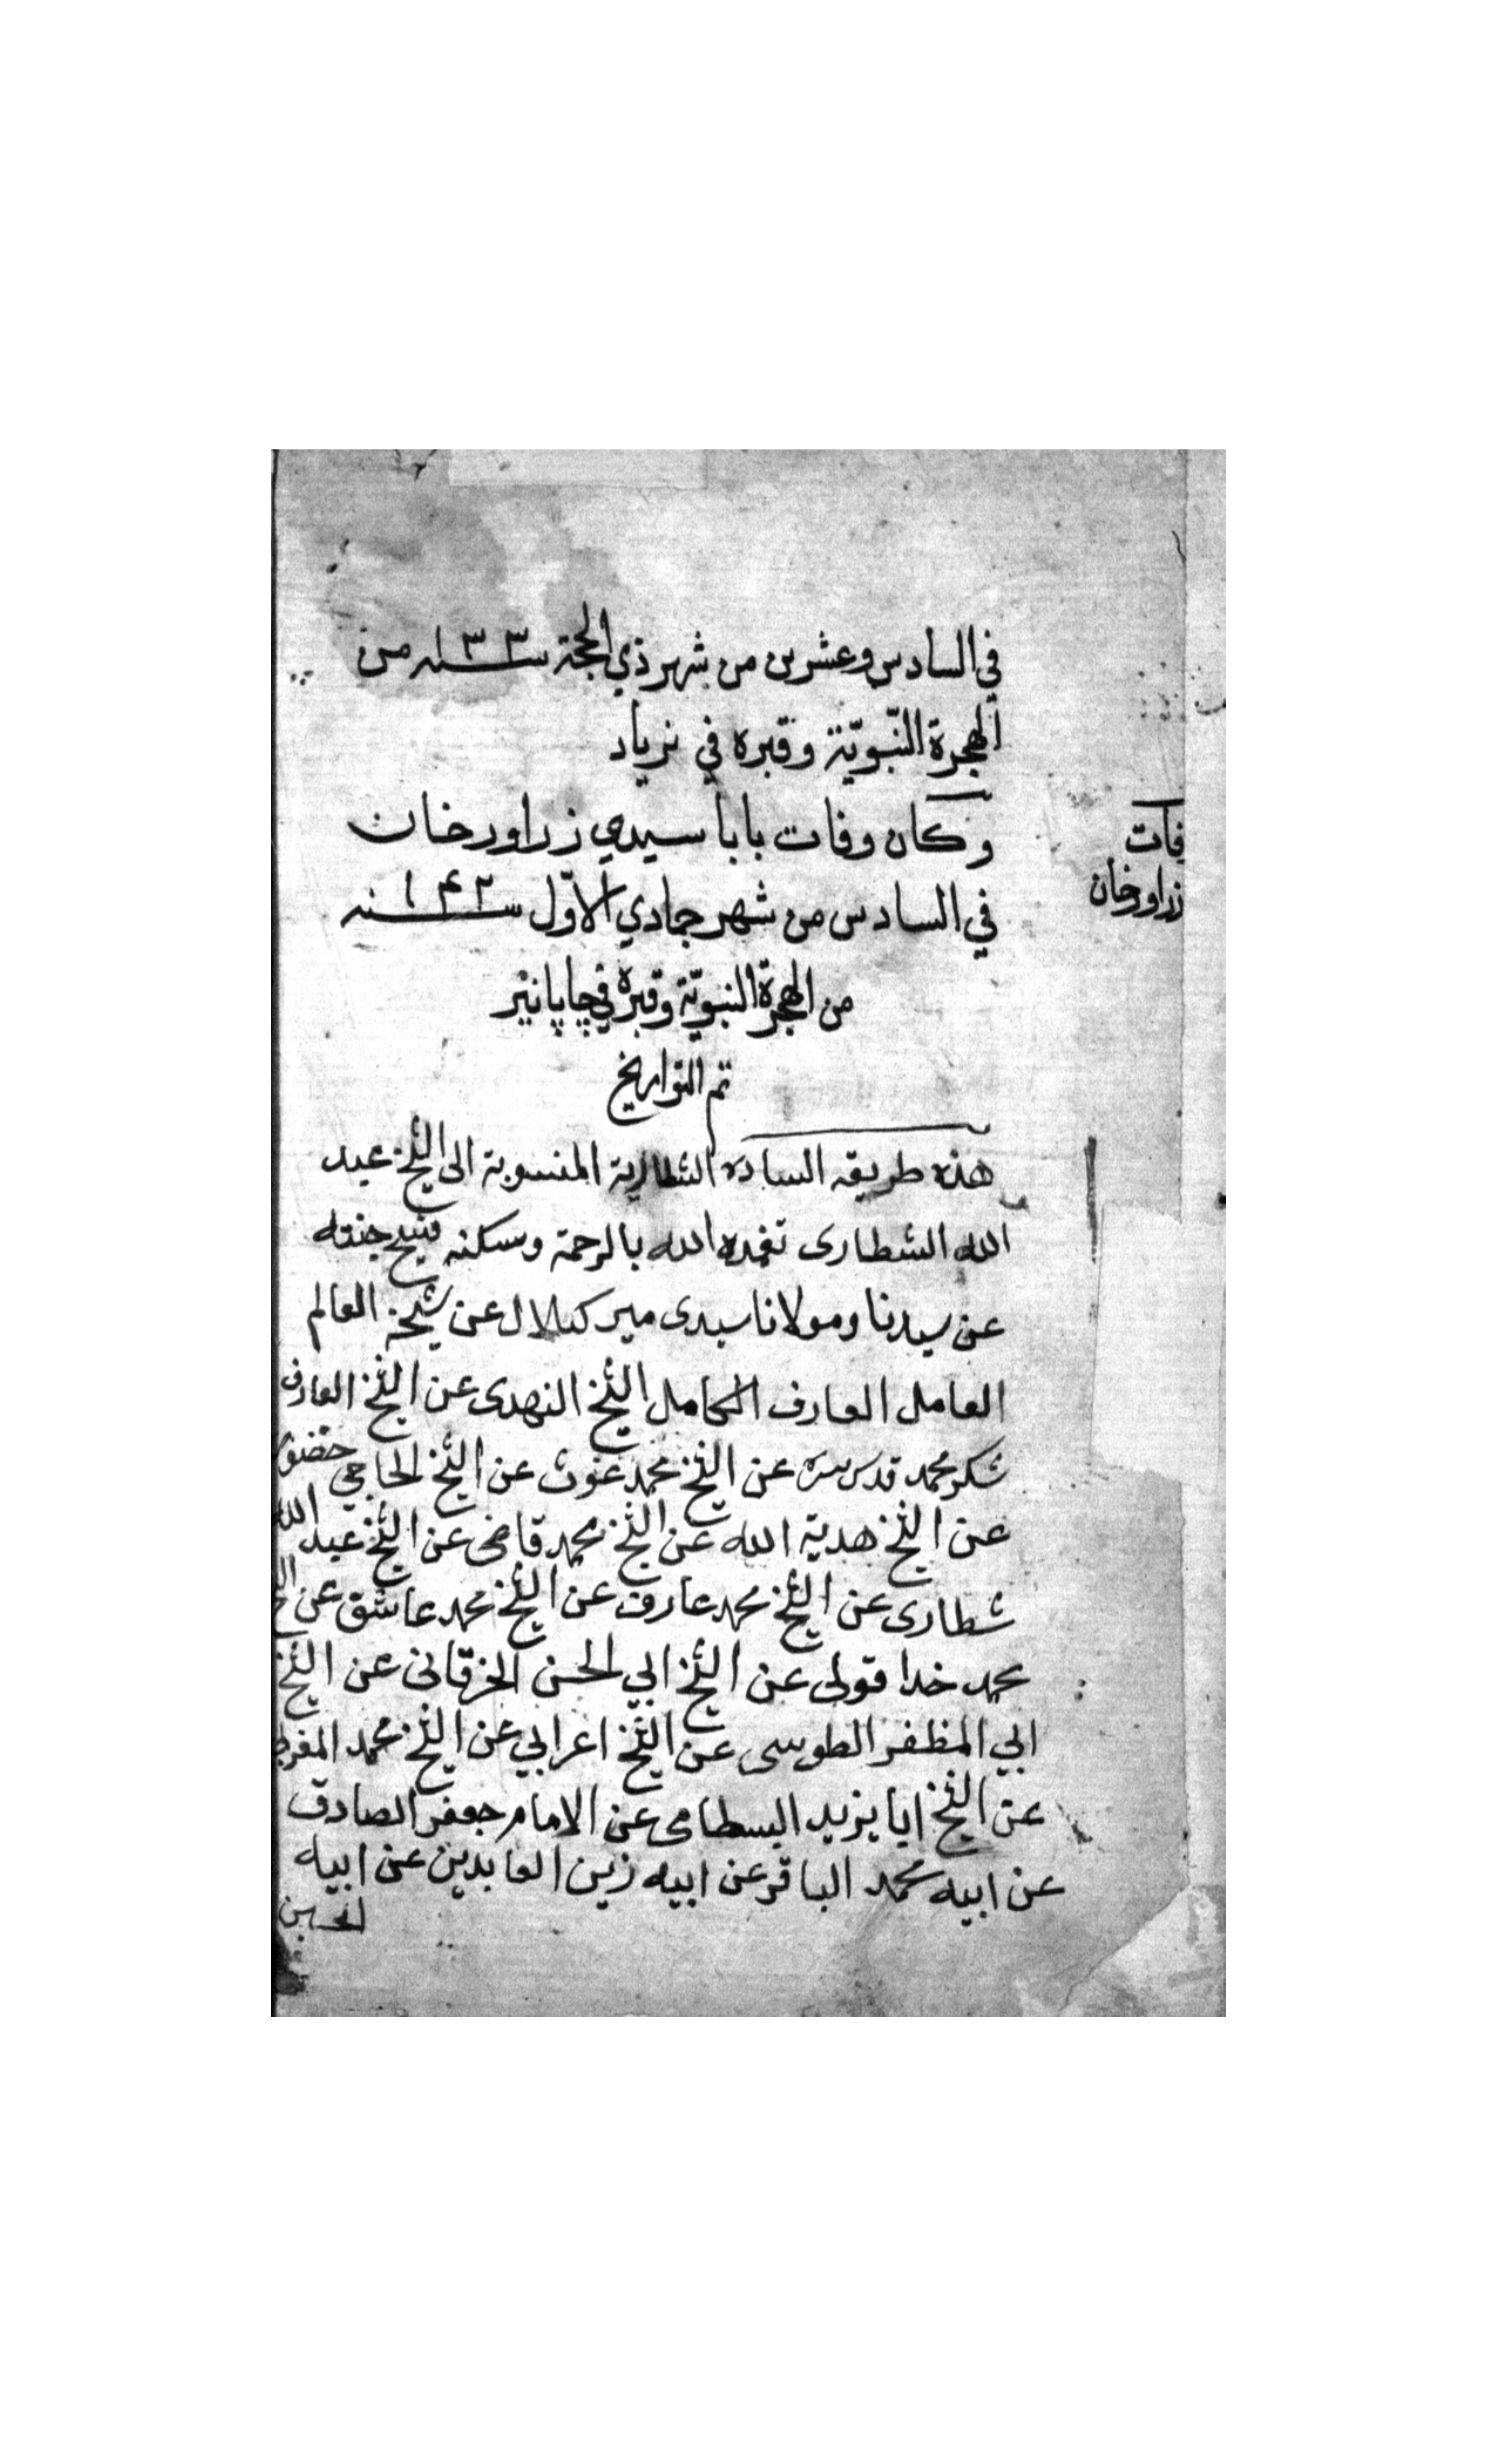 في السادس وعشرين من شهر ذي الحجة سنه ١٣٣ من
الهجرة النّبويّة وقبره في نرياد
وكان وفات بابا سيدي زراورخان
في السادس من شهر جمادي الاوّل سنه ١٤٢
من الهجرة النبويّة وقبره في چاپانير
تم التواريخ
هذه طريقه الساده الشطارية المنسوبة الى الشيخ عبد
الله الشطارى تغمده الله بالرحمة وسكنه فسيح جنته
عن سيدنا ومولانا سيدى مير كلال عن شيخه العالم
العامل العارف الكامل الشيخ النهدى عن الشيخ العارف
شكر محمد قدس سره عن الشيخ محمد غوث عن الشيخ الحاجي حضور
عن الشيخ هدية الله عن الشيخ محمد قاضى عن الشيخ عبد الله
شطارى عن الشيخ محمد عارف عن الشيخ محمد عاشق عن
محمد خدا قولى عن الشيخ ابي الحسن الخرقانى عن الشيخ
ابي المظفر الطوسى عن الشيخ اعرابي عن الشيخ محمد
عن الشيخ ابا يزيد البسطامى عن الامام جعفر الصادق
عن ابيه محمد الباقر عن ابيه زين العابدين عن ابيه
الحسين
فات
زراورخان